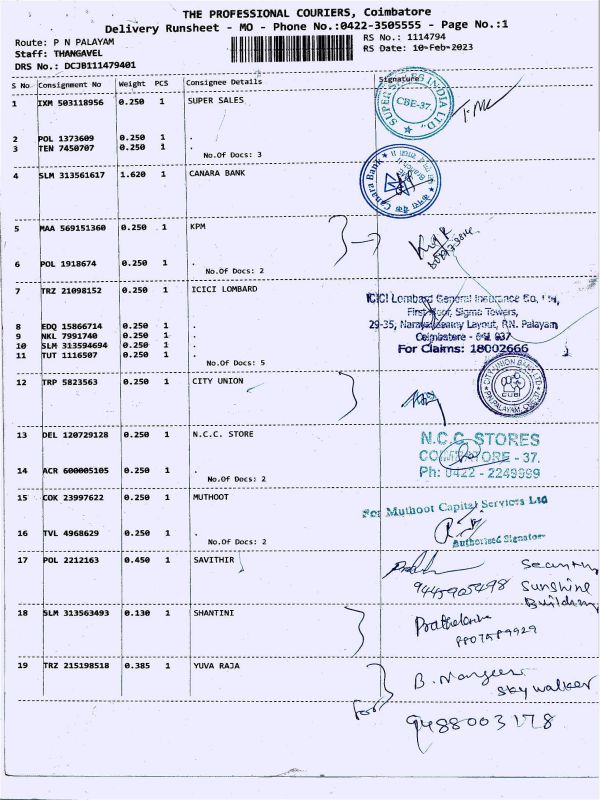 THE PROFESSIONAL COURIERS, Coimbatore
Delivery Runsheet - MO - Phone No.:0422-3505555 - Page No.:1
Route: P N PALAYAM
RS No.: 1114794
Staff: THANGAVEL
RS Date: 10-Feb-2023
DRS No.: DCJB111479401
S No Consignment No Weight PCS Consignee Details Signature
1 IXM 503118956 0.250 1 SUPER SALES
SUPER SALES INDIA LTD.
CBE-37.
2 POL 1373609 0.250 1 .
3 TEN 7450707 0.250 1 .
No.Of Docs: 3
4 SLM 313561617 1.620 1 CANARA BANK
Canara Bank
5 MAA 569151360 0.250 1 KPM
6 POL 1918674 0.250 1 .
No.Of Docs: 2
7 TRZ 21098152 0.250 1 ICICI LOMBARD
ICICI Lombard General Insurance Co. Ltd,
First Floor, Sigma Towers,
29-35, Narayanasamy Layout, P.N. Palayam
Coimbatore - 641 037
For Claims: 18002666
8 EDQ 15866714 0.250 1 .
9 NKL 7991740 0.250 1 .
10 SLM 313594694 0.250 1 .
11 TUT 1116507 0.250 1 .
No.Of Docs: 5
12 TRP 5823563 0.250 1 CITY UNION
CITY UNION BANK LTD
CUB
13 DEL 120729128 0.250 1 N.C.C. STORE
N.C.C. STORES
COIMBATORE - 37.
Ph: 0422 - 2249999
14 ACR 600005105 0.250 1 .
No.Of Docs: 2
15 COK 23997622 0.250 1 MUTHOOT
For Muthoot Capital Services Ltd
Authorised Signatory
16 TVL 4968629 0.250 1 .
No.Of Docs: 2
17 POL 2212163 0.450 1 SAVITHIR
Security
9445905498 Sunshine
Building
18 SLM 313563493 0.130 1 SHANTINI
19 TRZ 215198518 0.385 1 YUVA RAJA
Sky walker
for
9488003178